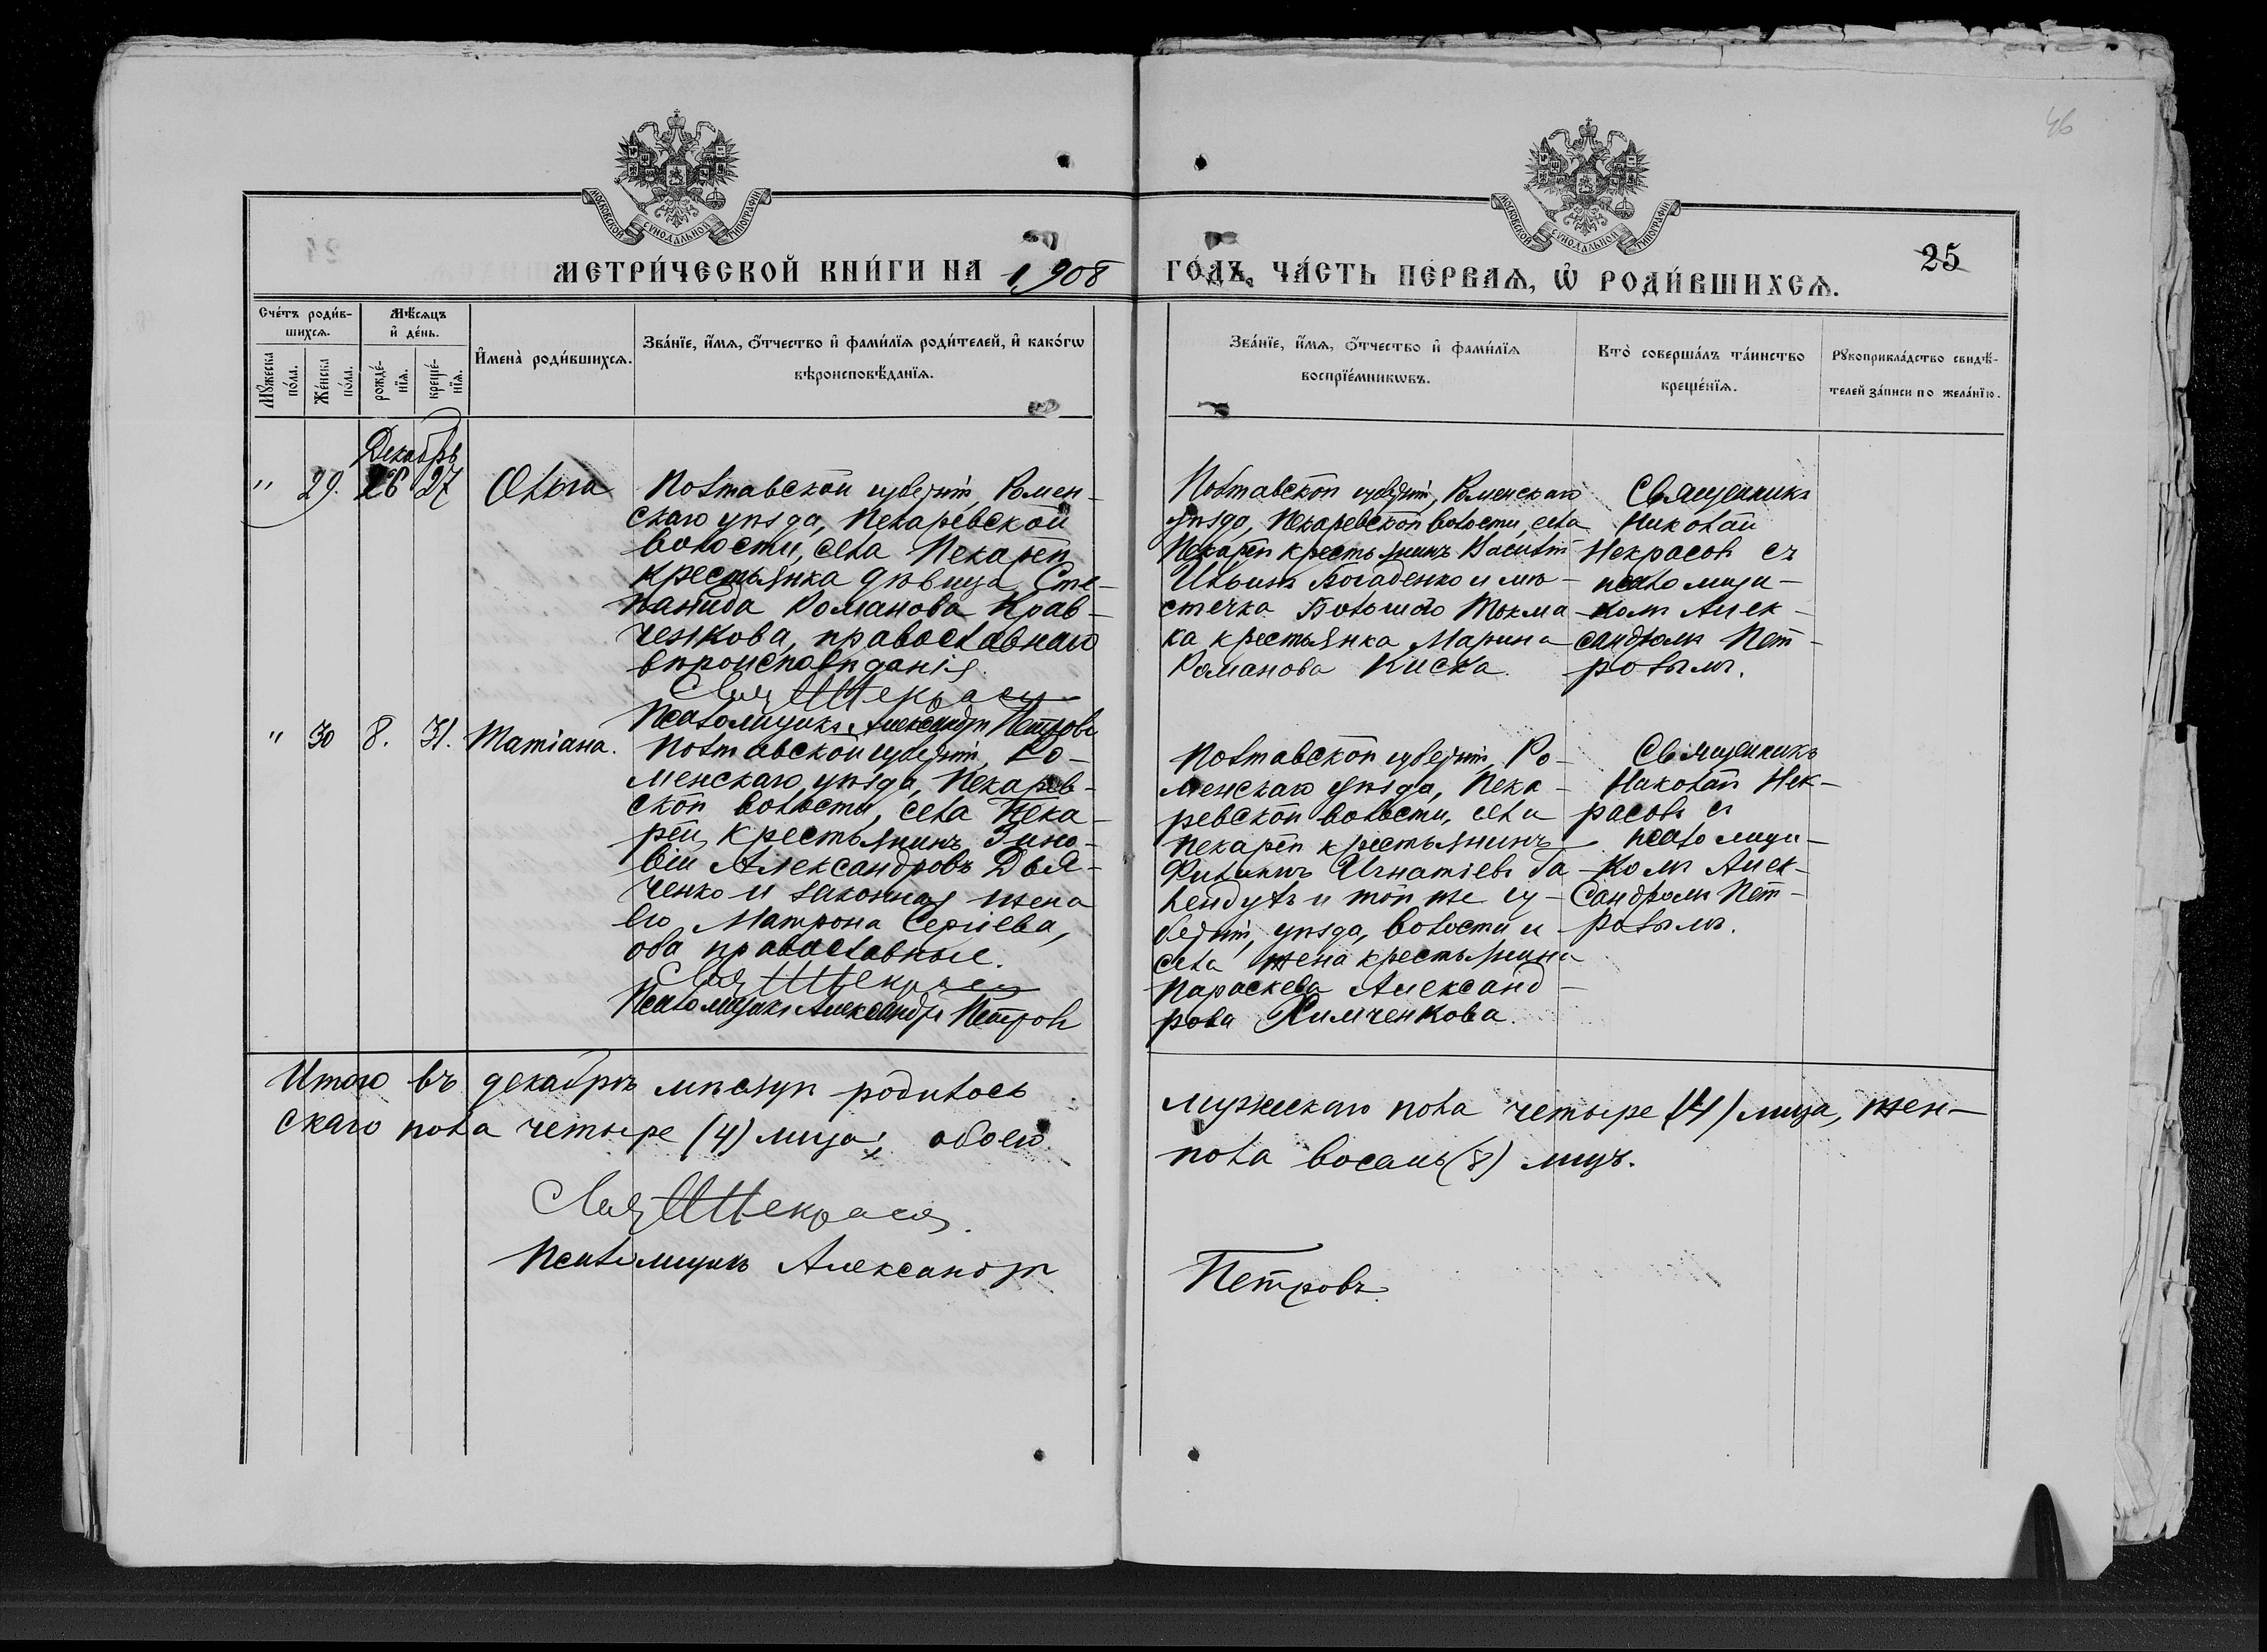 46
МОСКОВСКОЙ СУНОДАЛЬНОЙ ТИПОГРАФІИ
МОСКОВСКОЙ СУНОДАЛЬНОЙ ТИПОГРАФІИ
25
МЕТРИ́ЧЕСКОЙ КНИ́ГИ НА 1908 ГО́ДЪ, ЧА́СТЬ ПЕ́РВАѦ, Ѡ҆ РОДИ́ВШИХСѦ.
Сче́тъ роди́в-
шихсѧ.
Мꙋжеска по́ла.
Же́нска по́ла.
Мѣ́сѧцъ
и҆ де́нь.
рожде́-
нїѧ.
креще́-
нїѧ.
И҆мена̀ роди́вшихсѧ.
Зва́нїе, и҆́мѧ, ѻ҆́тчество и҆ фами́лїѧ роди́телей, и҆ како́гѡ
вѣроисповѣ́данїѧ.
Зва́нїе, и҆́мѧ, ѻ҆́тчество и҆ фами́лїѧ
воспрїе́мникѡвъ.
Кто̀ соверша́лъ та́инство
креще́нїѧ.
Рꙋкоприкла́дство свидѣ́-
телей за́писи по жела́нїю.
Декабрь
" 29. 26 27 Ольга
Полтавской губерніи, Ромен-
скаго уѣзда, Пекаревской
волости, села Пекарей
крестьянка дѣвица Сте-
панида Романова Крав-
ченкова, православнаго
вѣроисповѣданія.
Свящ Н Некрасо
Псаломщикъ Александръ Петровъ
Полтавской губерніи, Роменскаго
уѣзда, Пекаревской волости, села
Пекарей крестьянинъ Василій
Ильинъ Богаденко и мѣ-
стечка Большого Токма-
ка крестьянка Марина
Романова Киска.
Священникъ
Николай
Некрасовъ съ
псаломщи-
комъ Алек-
сандромъ Пет-
ровымъ.
" 30 8. 31. Татіана.
Полтавской губерніи, Ро-
менскаго уѣзда, Пекарев-
ской волости, села Пека-
рей, крестьянинъ Зино-
вій Александровъ Дья-
ченко и законная жена
его Матрона Сергіева,
оба православные.
Свящ Н Некрасо
Псаломщикъ Александръ Петровъ
Полтавской губерніи, Ро-
менскаго уѣзда, Пека-
ревской волости, села
Пекарей крестьянинъ
Филиппъ Игнатіевъ Га-
и той же гу-
берніи, уѣзда, волости и
села жена крестьянина
Параскева Александ-
рова Химченкова.
Священникъ
Николай Нек-
расовъ съ
псаломщи-
комъ Алек-
сандромъ Пет-
ровымъ.
Итого въ декабрѣ мѣсяцѣ родилось мужескаго пола четыре (4) лица, жен-
скаго пола четыре (4) лица; обоего пола восемь (8) лицъ.
Свящ Н Некрасо
Псаломщикъ Александръ Петровъ